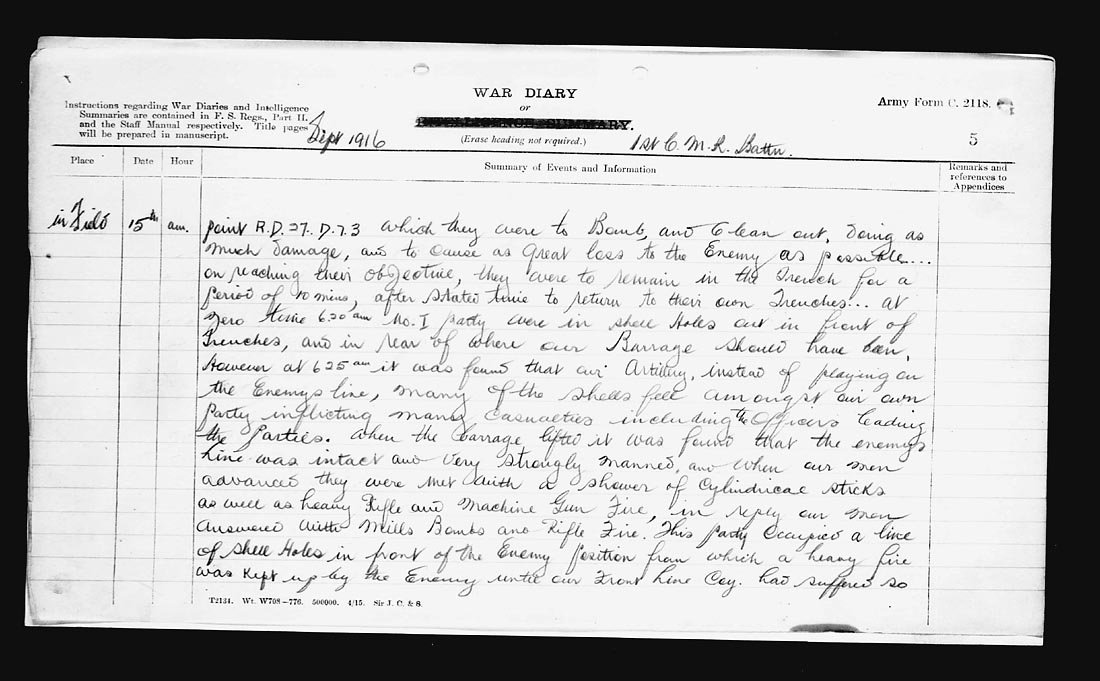 WAR DIARY
or
INTELLIGENCE SUMMARY.
(Erase heading not required.)
Army Form C. 2118.
Instructions regarding War Diaries and Intelligence
Summaries are contained in F. S. Regs., Part II.
and the Staff Manual respectively. Title pages
will be prepared in manuscript.
Sept 1916
1st C. M. R. Battn.
5
Place
Date
Hour
Summary of Events and Information
Remarks and
references to
Appendices
in Field 15th am. point R.D. 27. D.7.3 which they were to Bomb, and Clean out, doing as
much damage, and to cause as Great loss to the Enemy as possible....
on reaching their objective, they were to remain in the Trench for a
period of 10 mins, after stated time to return to their own Trenches... at
Zero time 6.20 am No. I party were in shell Holes out in front of
Trenches, and in rear of where our Barrage should have been.
However at 6 25 am it was found that our Artillery, instead of playing on
the Enemys line, many of the shells fell amongst our own
Party inflicting many Casualties including the Officers leading
the Parties. When the barrage lifted it was found that the enemys
Line was intact and very strongly manned, and when our men
advanced they were met with a shower of Cylindrical sticks
as well as heavy Rifle and Machine Gun Fire, in reply our men
answered with Mills Bombs and Rifle Fire. This party Occupied a line
of Shell Holes in front of the Enemy Position from which a heavy fire
was Kept up by the Enemy until our Front Line Coy. had suffered so
T2134. Wt. W708–776. 500000. 4/15. Sir J. C. & S.